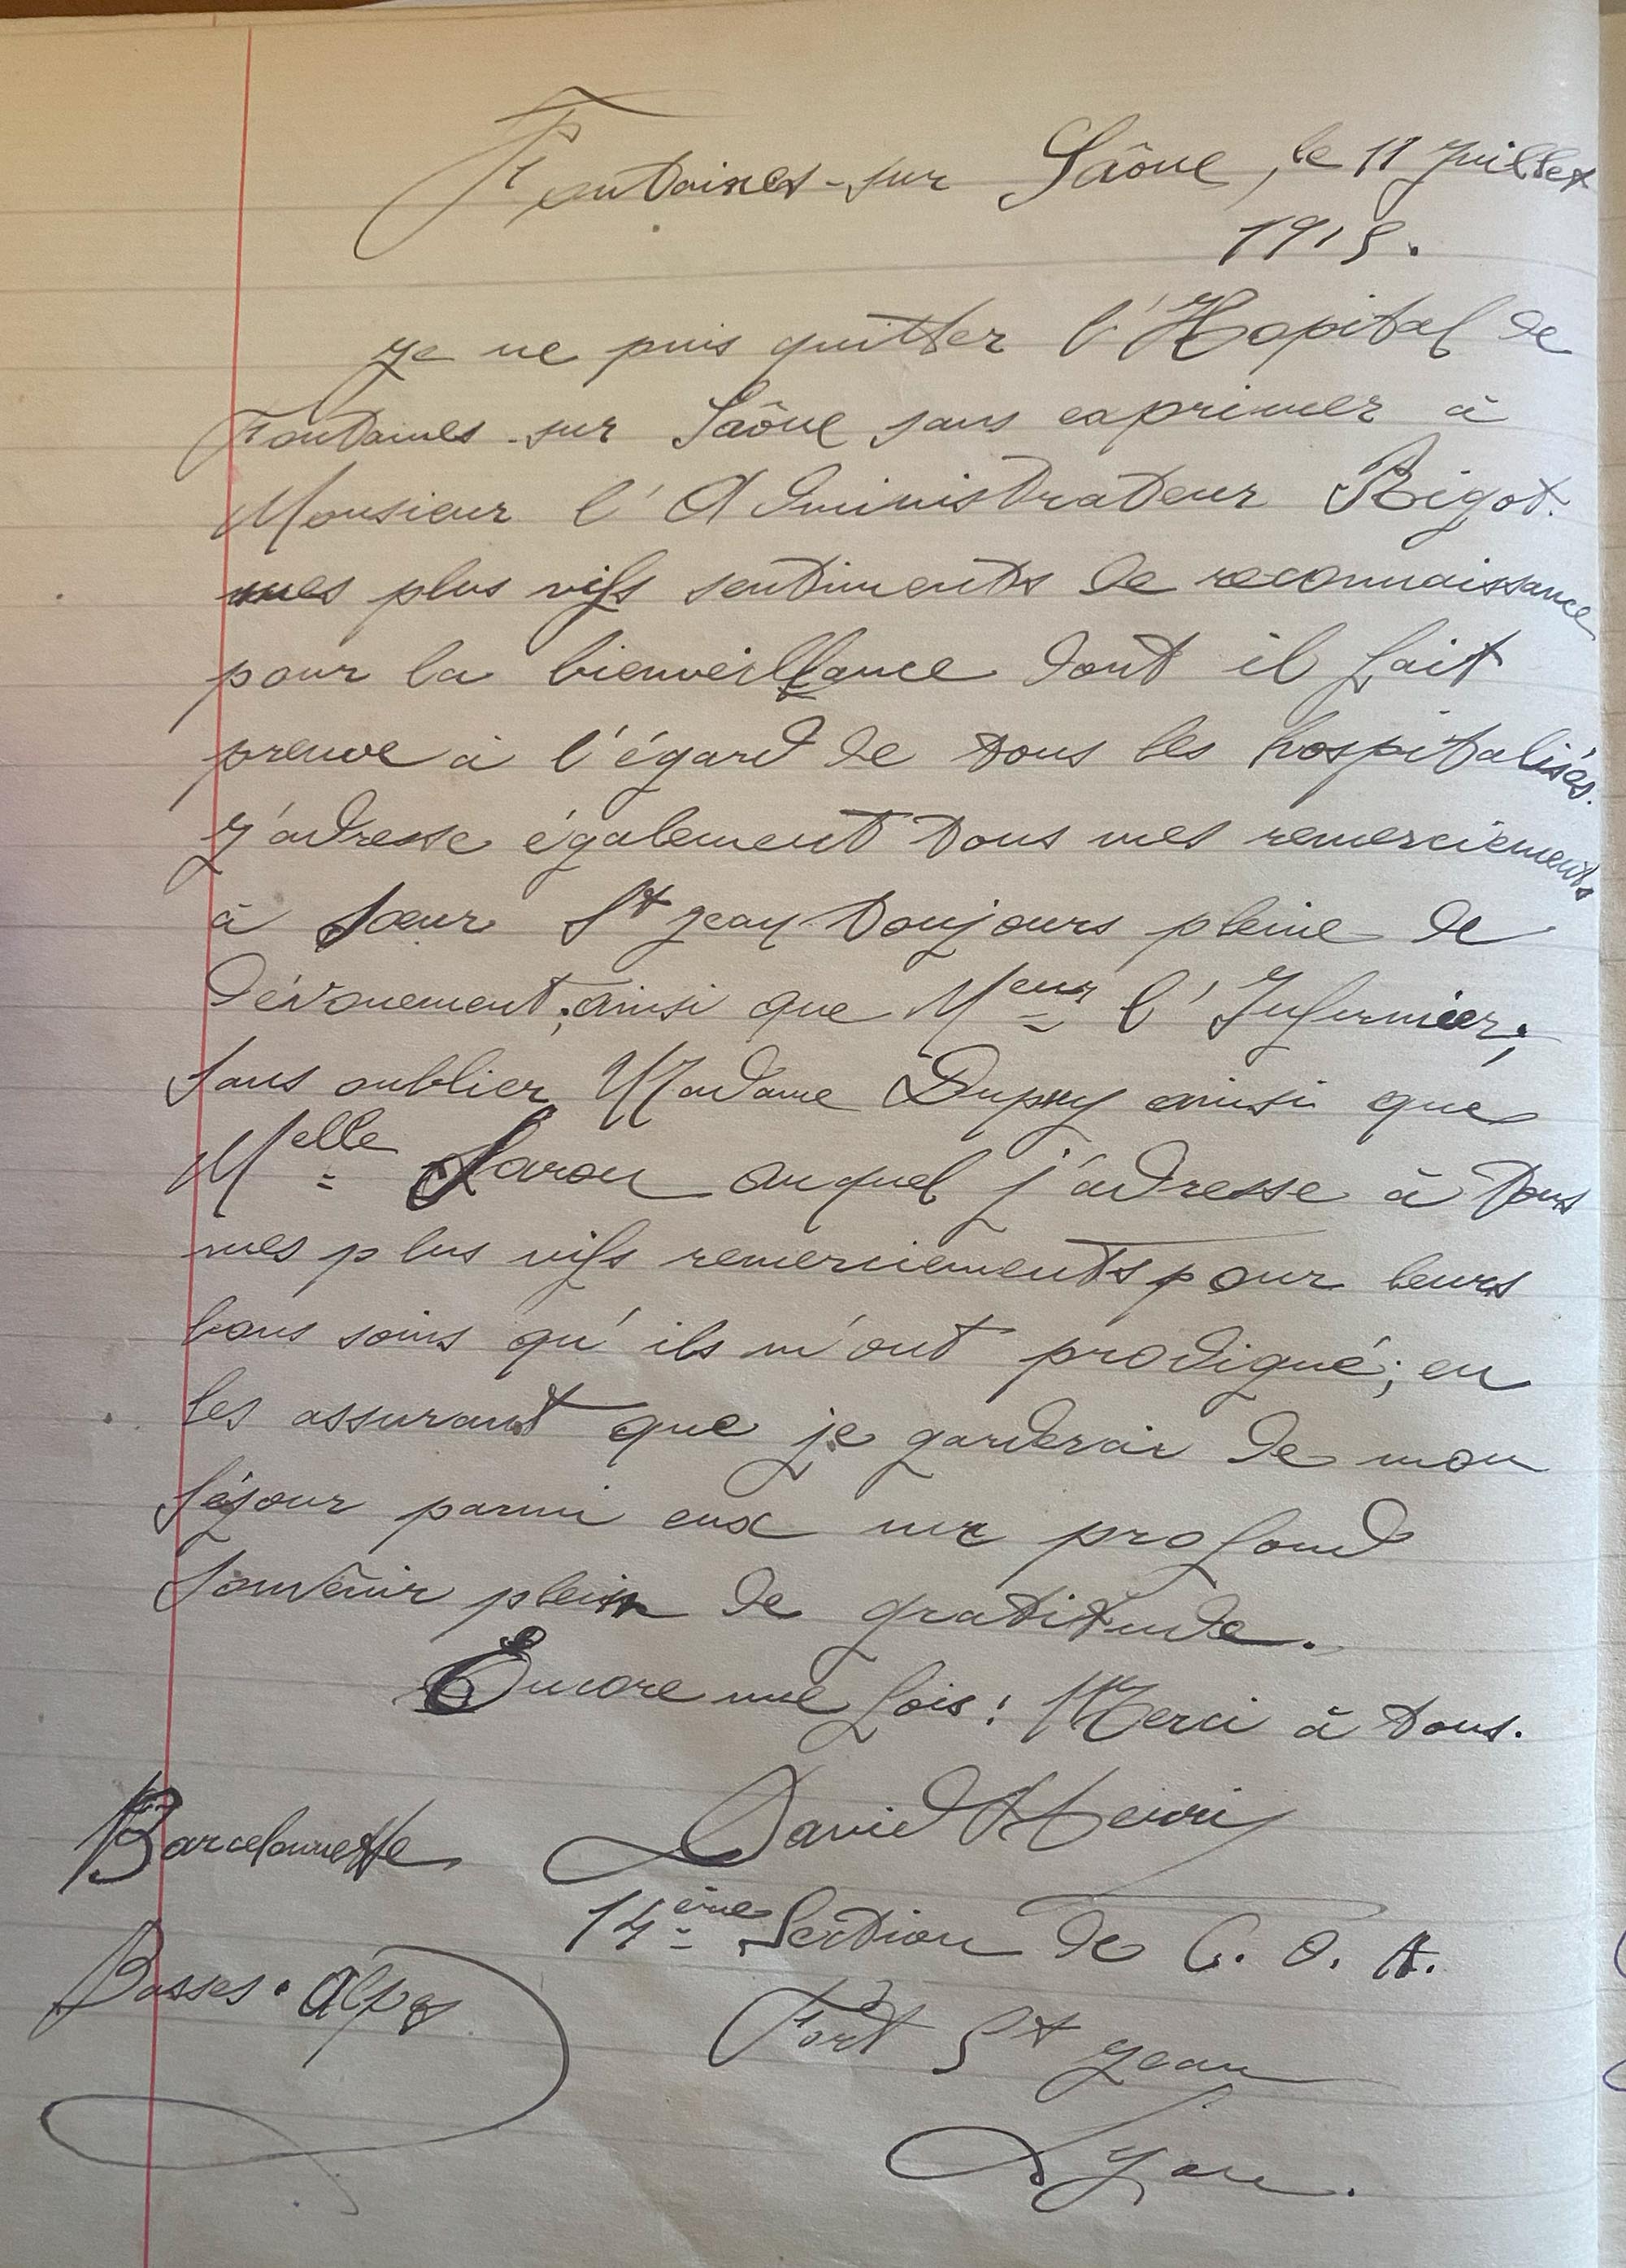 Fontaines-sur Saône, le 11 Juillet
1915.
Je ne puis quitter l'Hopital de
Fontaines-sur Saône sans exprimer à
Monsieur l'Administrateur Bigot.
mes plus vifs sentiments de reconnaissance
pour la bienveillance dont il fait
preuve à l'égard de tous les hospitalisés.
J'adresse également tous mes remerciements
à Sœur St Jean toujours pleine de
dévouement; ainsi que Meur l'Infirmier;
sans oublier Madame Dupuy ainsi que
Melle auquel j'adresse à tous
mes plus vifs remerciements pour leurs
bons soins qu'ils m'ont prodigué; en
les assurant que je garderai de mon
séjour parmi eux un profond
souvenir plein de gratitude.
Encore une fois! Merci à tous.
David Henri
Barcelonnette
14ème Section de C. O. A.
Basses-Alpes
Fort St Jean
Lyon.